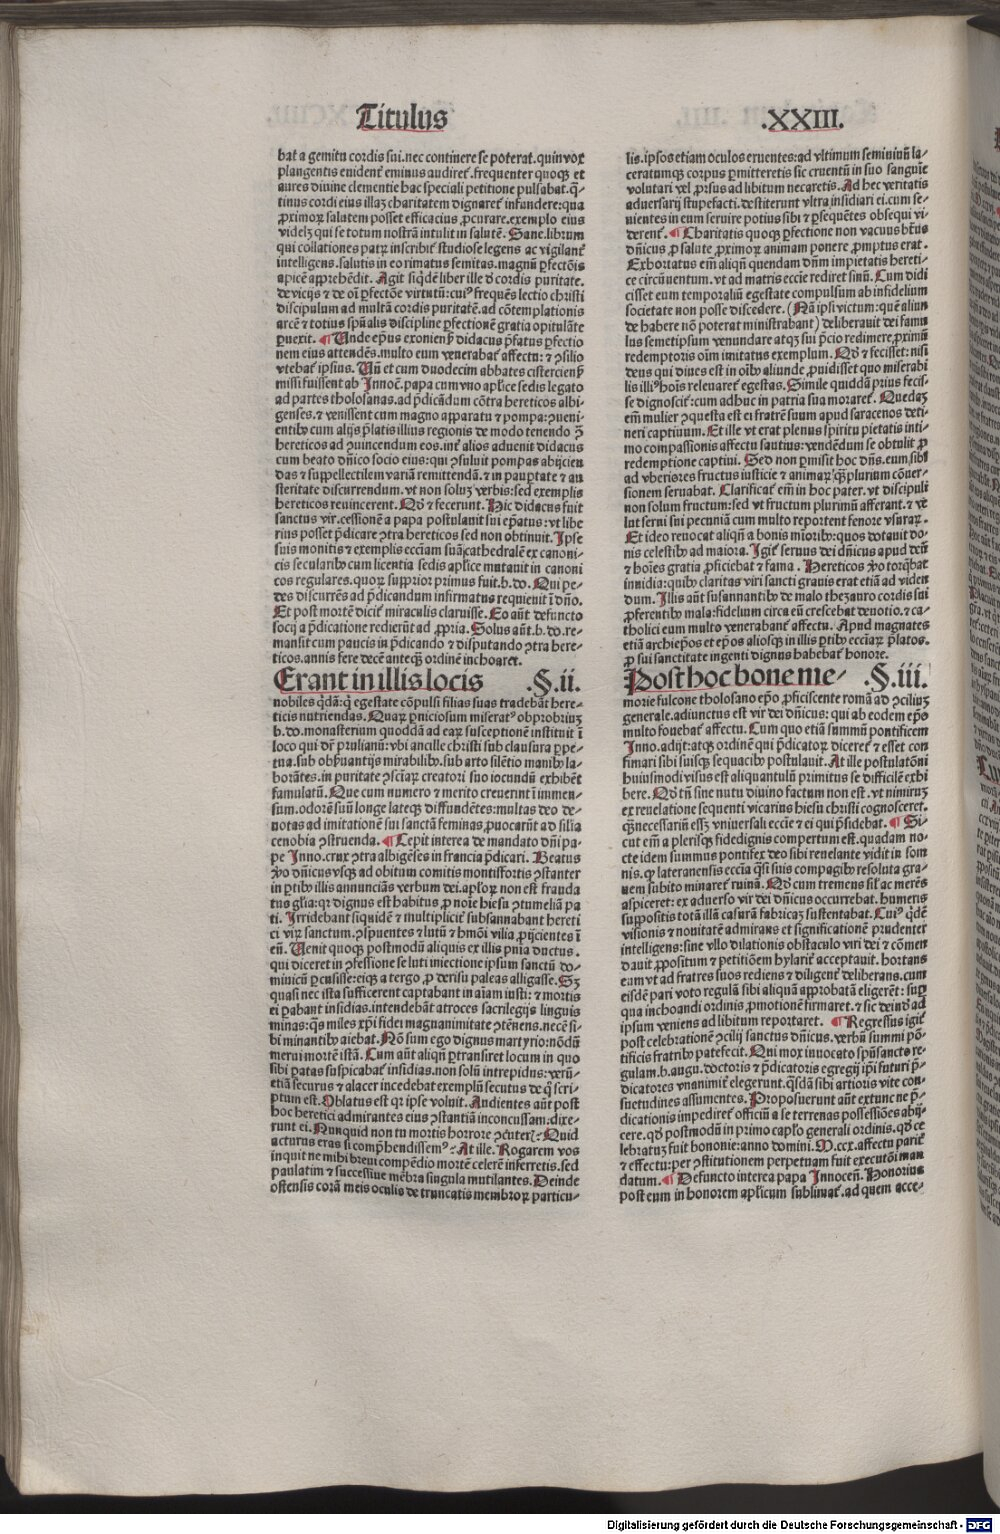 Titulus .XXIII.
bat a gemitu cordis sui. nec continere se poterat. quin vox
plangentis evidenť eminus audireť. frequenter quoqȝ et
aures divine clementie hac speciali petitione pulsabat. q̃-
tinus cordi eius illaȝ charitatem dignareť infundere: qua
ꝓximoꝝ salutem posset efficacius ꝓcurare. exemplo eius
videlȝ qui se totum nostrã intulit in salutẽ. Sane. librum
qui collationes patꝝ inscribiť studiose legens ac vigilanť
intelligens. salutis in eo rimatus semitas. magnũ ꝑfectõis
apicẽ apprehẽdit. Agit siq̃dẽ liber ille ð cordis puritate.
de vicijs ⁊ de oĩ ꝑfectõe virtutũ: cuiꝰ frequẽs lectio christi
discipulum ad multã cordis puritatẽ. ad cõtemplationis
arcẽ ⁊ totius spũalis discipline ꝑfectionẽ gratia opitulãte
ꝑuexit. ¶ Unde ep̃us exonienꝭ didacus p̃fatus ꝑfectio
nem eius attendẽs. multo eum venerabať affectu: ⁊ ꝯsilio
vtebať ipsius. Uñ et cum duodecim abbates cistercienꝭ
missi fuissent ab Innoẽ. papa cum vno ap̃lice sedis legato
ad partes tholosanas. ad p̃dicãdum cõtra hereticos albi-
genses. ⁊ venissent cum magno apparatu ⁊ pompa: ꝯueni-
entibꝰ cum alijs p̃latis illius regionis de modo tenendo ꝯ̃
hereticos ad ꝯuincendum eos. inť alios aduenit didacus
cum beato dñico socio eius: qui ꝯsuluit pompas abijcien
das ⁊ suppellectilem variã remittendã. ⁊ in paupertate ⁊ au
steritate discurrendum. vt non soluȝ verbis: sed exemplis
hereticos reuincerent. Qð ⁊ fecerunt. Hic didacus fuit
sanctus vir. cessionẽ a papa postulauit sui ep̃atus: vt libe
rius posset p̃dicare ꝯtra hereticos sed non obtinuit. Ipse
suis monitis ⁊ exemplis eccĩam suã cathedralẽ ex canoni-
cis secularibꝰ cum licentia sedis aplice mutauit in canoni
cos regulares. quoꝝ supprior primus fuit. b. do. Qui pe-
des discurrẽs ad p̃dicandum infirmatus requieuit ĩ dño.
Et post mortẽ diciť miraculis claruisse. Eo aũt defuncto
socij a p̃dicatione redierũt ad ꝓpria. Solus aũt. b. do. re-
mansit cum paucis in p̃dicando ⁊ disputando ꝯtra here-
ticos. annis fere decẽ anteqȝ ordinẽ inchoaret.
Erant in illis locis .§. ii.
nobiles q̃dã: q̃ egestate cõpulsi filias suas tradebãt here-
ticis nutriendas. Quaꝝ ꝑniciosum miseratꝰ obprobriuȝ
b. do. monasterium quoddã ad eaꝝ susceptionẽ instituit ĩ
loco qui dr̃ prulianũ: vbi ancille christi sub clausura ꝑpe-
tua. sub obp̃uantijs mirabilibꝰ. sub arto silẽtio manibꝰ la-
borãtes. in puritate ꝯsciẽaꝝ creatori suo iocundũ exhibẽt
famulatũ. Que cum numero ⁊ merito creuerint ĩmmen-
sum. odorẽ suũ longe lateqȝ diffundẽtes: multas deo de-
uotas ad imitationẽ sui sanctã feminas ꝓuocarũt ad silia
cenobia ꝯstruenda. ¶ Cepit interea de mandato dñi pa-
pe Inno. crux ꝯtra albigẽses in francia p̃dicari. Beatus
ꝟo dñicus vsqȝ ad obitum comitis montisfortis ꝯstanter
in ꝑtibꝰ illis annunciãs verbum dei. aploꝝ non est frauda
tus glĩa: qꝛ dignus est habitus ꝓ noĩe hiesu ꝯtumeliã pa
ti. Irridebant siquidẽ ⁊ multipliciť subsannabant hereti
ci viꝝ sanctum. ꝯspuentes ⁊ lutũ ⁊ hmõi vilia ꝓijcientes ĩ
eũ. Uenit quoqȝ postmodũ aliquis ex illis pnĩa ductus.
qui diceret in ꝯfessione se luti iniectione ipsum sanctũ do-
minicũ ꝑcussisse: eiqȝ a tergo ꝓ derisu paleas alligasse. Sȝ
quasi nec ista sufficerent captabant in aĩam iusti: ⁊ mortis
ei pabant insidias. intendebãt atroces sacrilegijs linguis
minas: q̃s miles xp̃i fidei magnanimitate ꝯtẽnens. necẽ si-
bi minantibꝰ aiebat. Nõ sum ego dignus martyrio: nõdũ
merui mortẽ istã. Cum aũt aliqñ ꝑtransiret locum in quo
sibi ꝑatas suspicabať insidias. non solũ intrepidus: verũ-
etiã securus ⁊ alacer incedebat exemplũ secutus de q̃ scri-
ptum est. Oblatus est qꝛ ipse voluit. Audientes aũt post
hoc heretici admirantes eius ꝯstantiã inconcussam: dixe-
runt ei. Nunquid non tu mortis horrore ꝯcuteĩ? Quid
acturus eras si comp̃hendissemꝰ? At ille. Rogarem vos
inquit ne mihi breui compẽdio mortẽ celerẽ inferretis. sed
paulatim ⁊ successiue mẽbra singula mutilantes. Deinde
ostensis corã meis oculis de truncatis membroꝝ particu-
lis. ipsos etiam oculos eruentes: ad vltimum seminiuũ la-
ceratumqȝ corpus ꝑmitteretis sic cruentũ in suo sanguĩe
volutari vel ꝓrsus ad libitum necaretis. Ad hec veritatis
aduersarij stupefacti. destiterunt vltra insidiari ei. cum se-
uientes in eum seruire potius sibi ⁊ ꝑsequẽtes obsequi vi-
derent̃. ¶ Charitatis quoqȝ ꝑfectione non vacuus btũs
dñicus. ꝓ salute ꝓximoꝝ animam ponere ꝓmptus erat.
Exhortatus em̃ aliqñ quendam dñm impietatis hereti-
ce circũuentum. vt ad matris eccĩe rediret sinũ. Cum didi
cisset eum temporaliũ egestate compulsum ab infidelium
societate non posse discedere. (Nã ipsi victum: quẽ aliun
de habere nõ poterat ministrabant) deliberauit dei famu
lus semetipsum venundare atqȝ sui p̃cio redimere ꝓximũ
redemptoris oĩm imitatus exemplum. Qð ⁊ fecisset: nisi
deus qui diues est in oĩbꝰ aliunde ꝓuidisset quo miserabĩ
lis illiꝰ hoĩs releuareť egestas. Simile quiddã prius fecis-
se dignosciť: cum adhuc in patria sua morareť. Quedaȝ
em̃ mulier ꝯquesta est ei fratrẽ suum apud saracenos deti-
neri captiuum. Et ille vt erat plenus spiritu pietatis inti-
mo compassionis affectu sautius: vendẽdum se obtulit ꝓ
redemptione captiui. Sed non ꝑmisit hoc dñs. eum sibĩ
ad vberiores fructus iusticie ⁊ animaꝝ qȝplurium cõuer-
sionem seruabat. Clarificať em̃ in hoc pater. vt discipuli
non solum fructum: sed vt fructum plurimũ afferant. ⁊ ve
lut serui sui pecuniã cum multo reportent fenore vsuraꝝ.
Et ideo reuocat aliqñ a bonis mĩoribꝰ: quos dotauit do-
nis celestibꝰ ad maiora. Igiť seruus dei dñicus apud deũ
⁊ hoĩes gratia ꝓficiebat ⁊ fama. Hereticos ꝟo torq̃bat
inuidia: quibꝰ claritas viri sancti grauis erat etiã ad viden
dum. Illis aũt susannantibꝰ de malo thezauro cordis sui
ꝓferentibꝰ mala: fidelium circa eũ crescebat deuotio. ⁊ ca-
tholici eum multo venerabanť affectu. Apud magnates
etiã archiep̃os ⁊ ep̃os aliosqȝ in illis ꝑtibꝰ eccĩaꝝ p̃latos.
ꝓ sui sanctitate ingenti dignus habebať honore.
Post hoc bone me- .§. iii.
morie fulcone tholosano ep̃o ꝓficiscente romã ad ꝯciliuȝ
generale. adiunctus est vir dei dñicus: qui ab eodem ep̃o
multo fouebať affectu. Cum quo etiã summũ pontificem
Inno. adijt: atqȝ ordinẽ qui p̃dicatoꝝ diceret ⁊ esset con
firmari sibi suisqȝ sequacibꝰ postulauit. At ille postulatõni
huiusmodi visus est aliquantulũ primitus se difficilẽ exhi
bere. Qð tñ sine nutu diuino factum non est. vt nimiruȝ
ex reuelatione sequenti vicarius hiesu christi cognosceret.
qȝ necessariũ esset vniuersali eccĩe ⁊ ei qui p̃sidebat. ¶ Si-
cut em̃ a plerisqȝ fidedignis compertum est. quadam no-
cte idem summus pontifex deo sibi reuelante vidit in som
nis. ꝙ lateranensis eccĩa q̃si suis compagibꝰ resoluta gra-
uem subito minareť ruinã. Qð cum tremens siĩ ac merẽs
aspiceret: ex aduerso vir dei dñicus occurrebat. humeris
suppositis totã illã casurã fabricaȝ sustentabat. Cuiꝰ q̃dẽ
visionis ⁊ nouitatẽ admirans et significationẽ prudenter
intelligens: sine vllo dilationis obstaculo viri dei ⁊ cõmen
dauit ꝓpositum ⁊ petitiõem hylariť acceptauit. hortans
eum vt ad fratres suos rediens ⁊ diligenť deliberans. cum
eisdẽ pari voto regulã sibi aliquã approbatã eligerẽt: suꝑ
qua inchoandi ordinis ꝓmotionẽ firmaret. ⁊ sic deinð ad
ipsum veniens ad libitum reportaret. ¶ Regressus igiť
post celebrationẽ ꝯcilij sanctus dñicus. verbũ summi põ-
tificis fratribꝰ patefecit. Qui mox inuocato spũsancto re-
gulam. b. augu. doctoris ⁊ p̃dicatoris egregij ip̃i futuri p̃-
dicatores vnanimiť elegerunt. q̃sdã sibi artioris vite con-
suetudines assumentes. Proposuerunt aũt extunc ne p̃-
dicationis impedireť officiũ a se terrenas possessiões abij-
cere. qð postmodũ in primo caplo generali ordinis. qð ce
lebratuȝ fuit bononie: anno domini. M.ccx. affectu pariť
⁊ effectu: per ꝯstitutionem perpetuam fuit executõi man
datum. ¶ Defuncto interea papa Innocen. Honorius
post eum in honorem aplicum sublimať. ad quem acce-
Digitalisierung gefördert durch die Deutsche Forschungsgemeinschaft - DFG